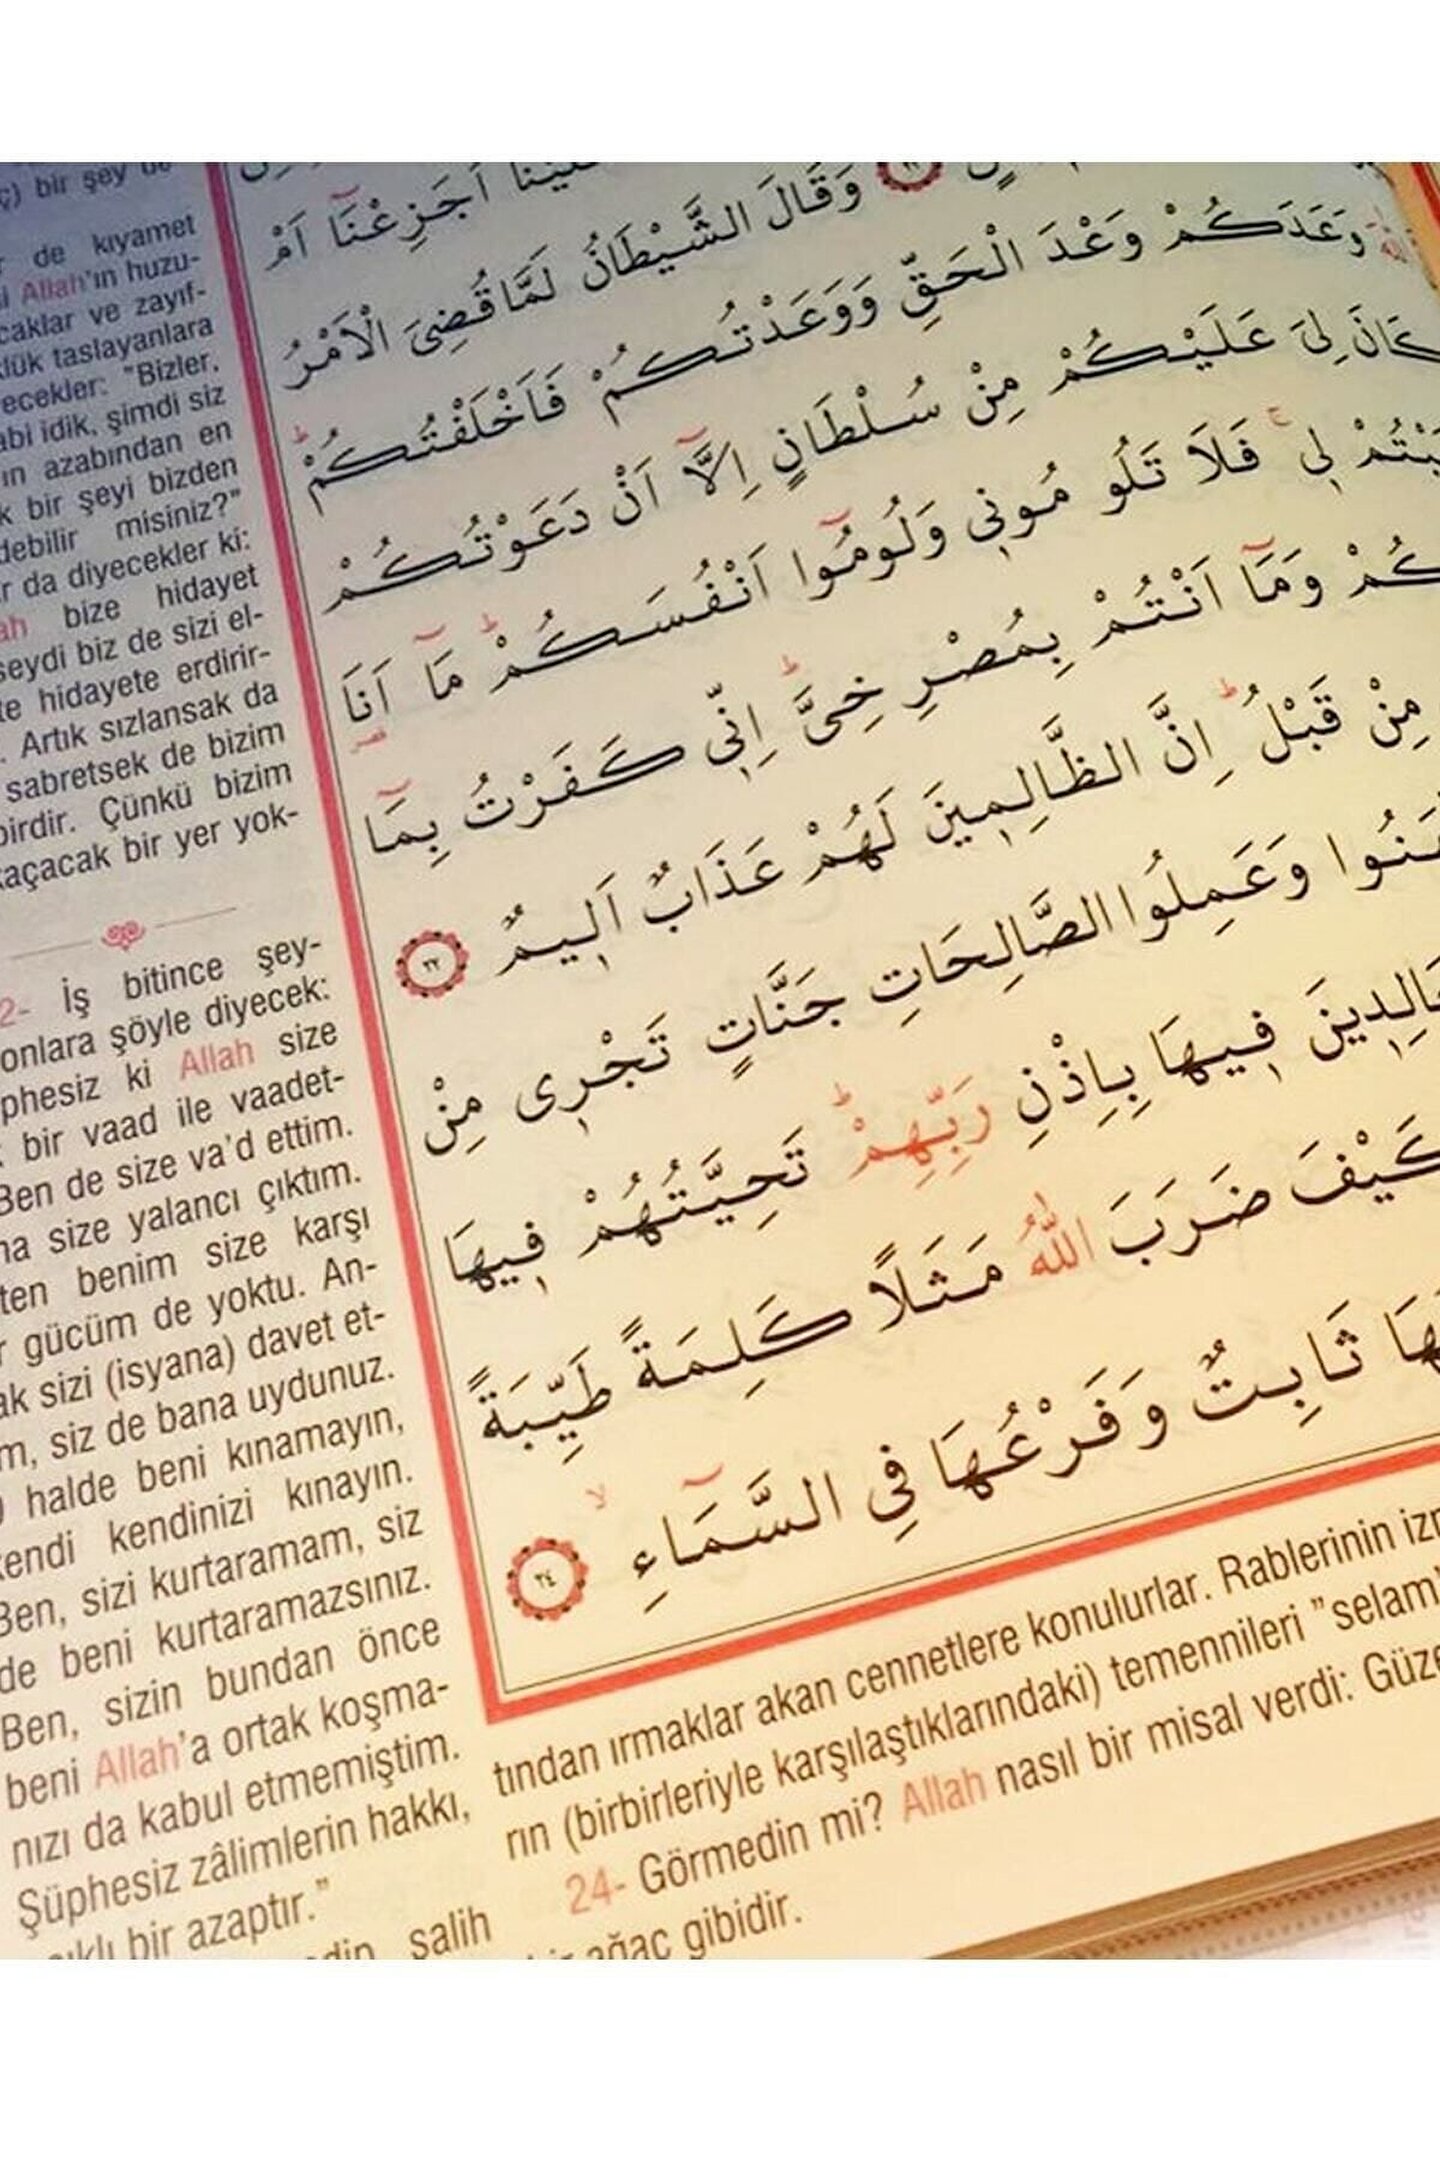 bir şey
de kıyamet
Allah'ın huzu-
caklar ve zayıf-
lük taslayanlara
ecekler: "Bizler,
abi idik, şimdi siz
ın azabından en
k bir şeyi bizden
debilir misiniz?"
r da diyecekler ki:
ah bize hidayet
seydi biz de sizi el-
te hidayete erdirir-
. Artık sızlansak da
sabretsek de bizim
birdir. Çünkü bizim
kaçacak bir yer yok-
2- İş bitince şey-
onlara şöyle diyecek:
phesiz ki Allah size
k bir vaad ile vaadet-
Ben de size va'd ettim.
ma size yalancı çıktım.
ten benim size karşı
r gücüm de yoktu. An-
ak sizi (isyana) davet et-
m, siz de bana uydunuz.
halde beni kınamayın,
kendi kendinizi kınayın.
Ben, sizi kurtaramam, siz
de beni kurtaramazsınız.
Ben, sizin bundan önce
beni Allah'a ortak koşma-
nızı da kabul etmemiştim.
Şüphesiz zâlimlerin hakkı,
bir azaptır."
salih
اَجَزِعْنَٓا اَمْ
وَقَالَ الشَّيْطَانُ لَمَّا قُضِيَ الْاَمْرُ
وَعَدَكُمْ وَعْدَ الْحَقِّ وَوَعَدْتُكُمْ فَاَخْلَفْتُكُمْۜ
كَانَ لِيَ عَلَيْكُمْ مِنْ سُلْطَانٍ اِلَّٓا اَنْ دَعَوْتُكُمْ
بْتُمْ لِيۚ فَلَا تَلُومُونِي وَلُومُٓوا اَنْفُسَكُمْۜ مَٓا اَنَا۬
كُمْ وَمَٓا اَنْتُمْ بِمُصْرِخِيَّۜ اِنِّي كَفَرْتُ بِمَٓا
مِنْ قَبْلُۜ اِنَّ الظَّالِمِينَ لَهُمْ عَذَابٌ اَلِيمٌ ٢٢
مَنُوا وَعَمِلُوا الصَّالِحَاتِ جَنَّاتٍ تَجْرِي مِنْ
خَالِدِينَ فِيهَا بِاِذْنِ رَبِّهِمْۜ تَحِيَّتُهُمْ فِيهَا
كَيْفَ ضَرَبَ اللّٰهُ مَثَلًا كَلِمَةً طَيِّبَةً
هَا ثَابِتٌ وَفَرْعُهَا فِي السَّمَٓاءِۙ ٢٤
tından ırmaklar akan cennetlere konulurlar. Rablerinin izn
rın (birbirleriyle karşılaştıklarındaki) temennileri "selam"
24- Görmedin mi? Allah nasıl bir misal verdi: Güze
ağaç gibidir.